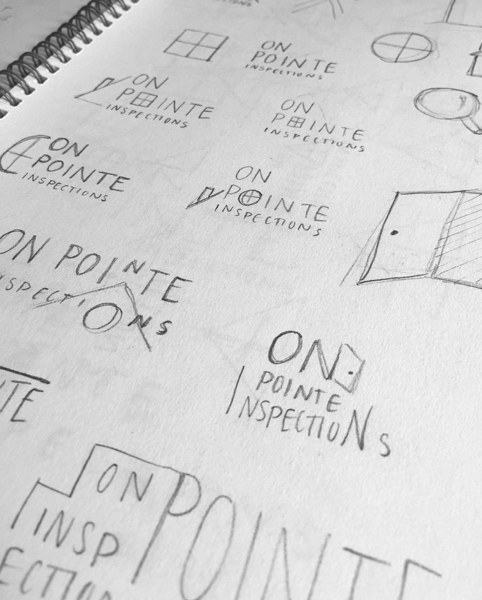 ON
POINTE
INSPECTIONS
ON
POINTE
INSPECTIONS
ON
POINTE
INSPECTIONS
ON
POINTE
INSPECTIONS
ON
POINTE
INSPECTIONS
ON POINTE
INSPECTIONS
ON
POINTE
INSPECTIONS
ON POINTE
INSP
ECTION